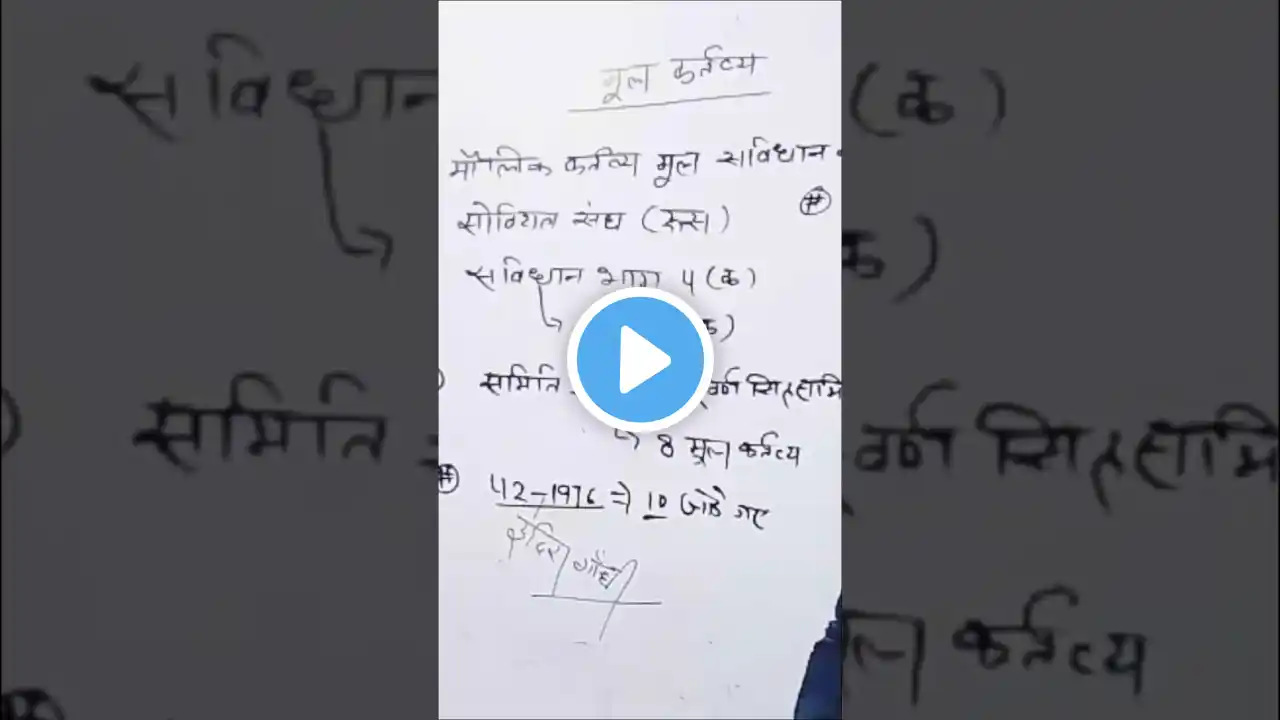 मूल कर्तव्य
मौलिक कर्तव्य मूल सविधान
#
सोवियत संघ (रूस)
सविधान भाग 4 (क)
क)
समिति
वर्ण सिंह समि
→ 8 मूल कर्तव्य
# 42-1976 ⇒ 10 जोडे गए
इंदिरा गाँधी